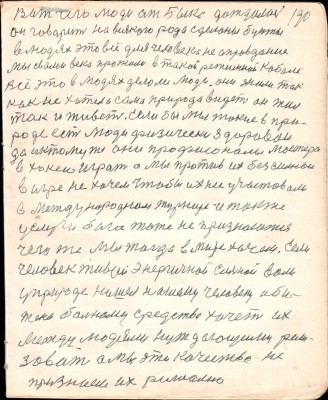 Вит ель люди от быка до дня 130
он говорит на всякого рода сделаны бунты
в людях это всё для человека не оправдание
мы свои века прожили в такой религиозной
всё это в людях делом люди, они жили так
как не хотела сама природа видеть он жил
так и живет. Если бы мы тоже в при-
роде ест люди физически здоровы
за их то уже они профессионалы мастера
в хоккей играт а мы против их бессильной
в игре не хочем чтобы их не участвовали
в международном турнире и также
услуги бога тоже не признаются
чего же мы тогда в мире хочем. Если
человек живой энергичной сильной волей
у природе нашел нашему человеку оби-
жено больному средство хочет их
между людями нуждающему реали-
зоват а мы эти качества не
признаем их реально